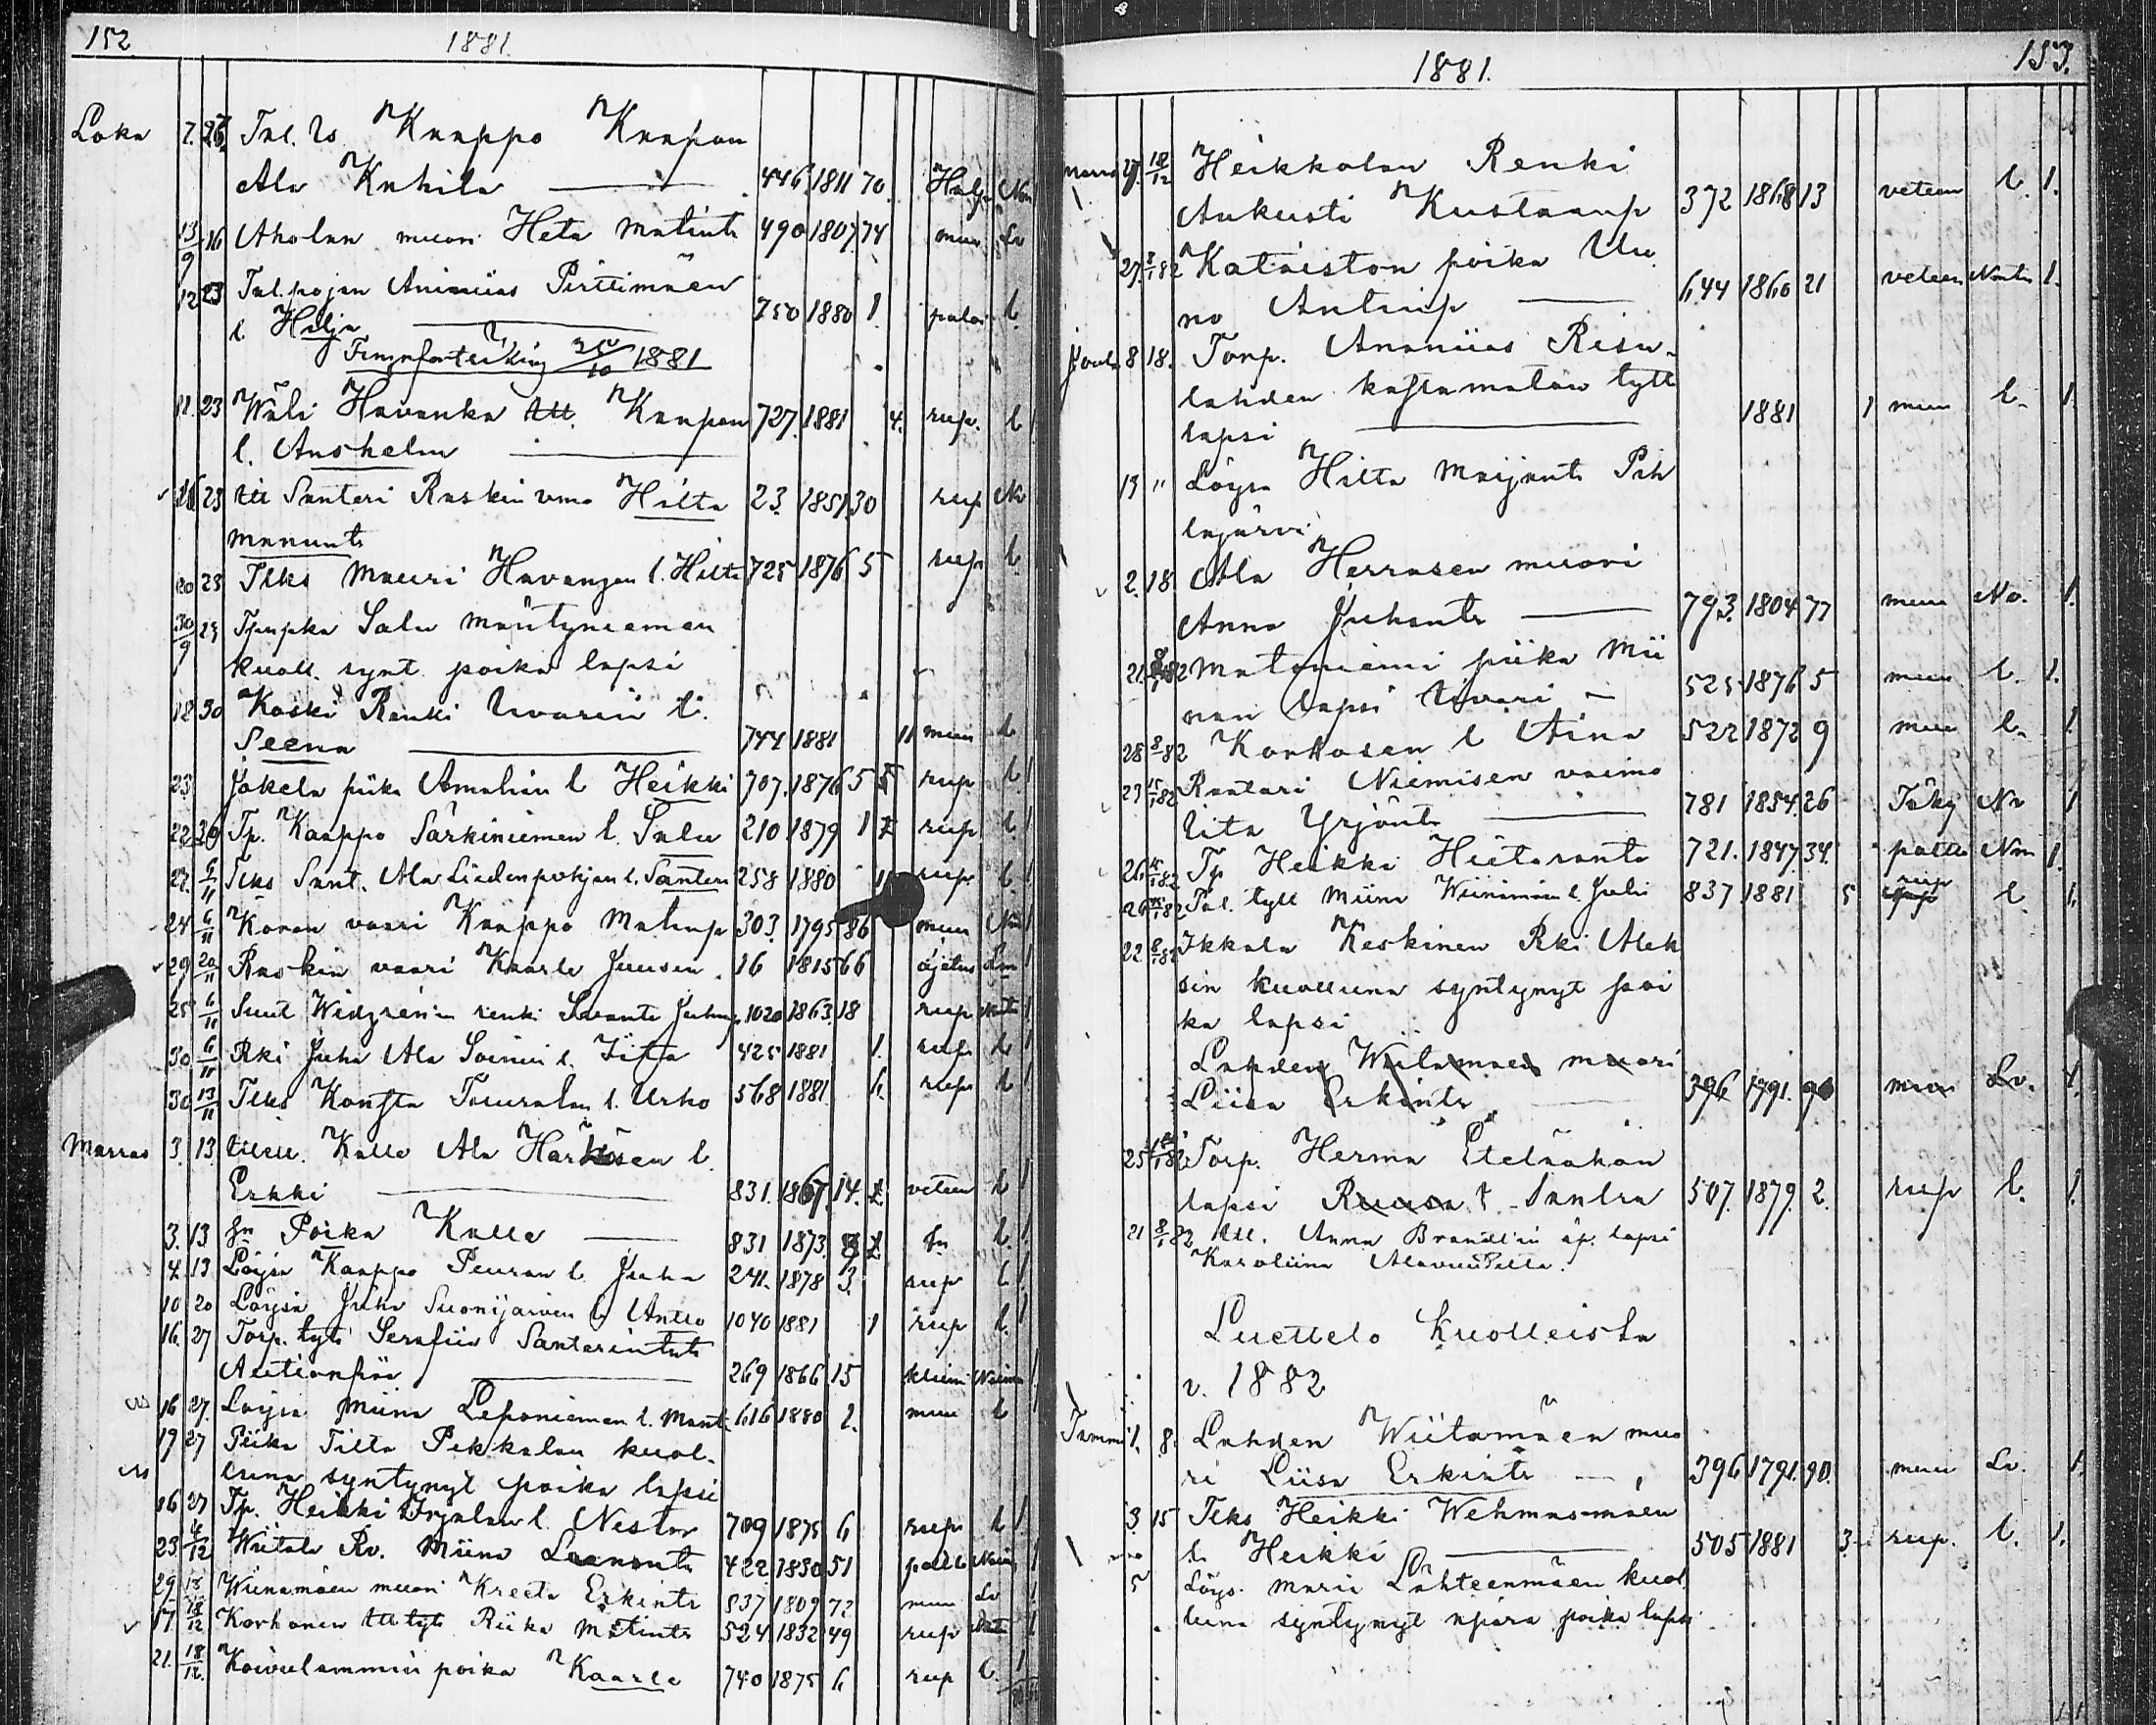 152 1881.
Loka 7. 26 Tal. Kaappo Kaapon
Ala Kuhila — 446 1811 70 Halv. Nm
13/9 16 Aholan muori Heta Matint. 490 1807 74 muu Lv
12 23 Tal. pojan Aniaias Pirttimäen
l. Hilja — 750 1880 1 paloi l.
25/10 1881
11. 23 Wäli Havanka Kaapon 727. 1881 4. rup. l
l. Anshelm —
16 23 Santeri Raskin vmo Hilta 23. 1851 30 rup Nv
Manunt.
20 23 Tlks Mauri Havangan l. Hilta 725 1876 5 rup l.
30/9 23 Salu Mäntyniemen
kuoll. synt. poika lapsi
18 30 Koski Renki Iivarin l.
Seena — 744 1881 11 muu l.
23 Jokela piika Amalian l. Heikki 707. 1876 5 rup l
22 30 Tp. Kaappo Särkiniemen l. Salu 210 1879 1 rup l
22. 6/11 Tlks Sant. Ala Liedenpohjan l. Santeri 258 1880 rup. l.
24 6/11 Koran vaari Kaappo Matinp 303. 1795 86 muu Nm
29 20/11 Raskin vaari Kaarle Juusen. 16 1815 66 äjetus Lm
25 6/11 Suut. Widgrenin renki Sivante Juhanp. 1020 1863. 18 rup
30 6/11 Rki Juha Ala Soinin l. Iita 425 1881 1. rup l
30 13/11 Tlks Konsta Touralan l. Urho 568 1881. 6. rup l
Marras 3. 13. Kalle Ala Harkösen l.
Erkki — 831. 1867. 14. veteen l
3. 13 Poika Kalle — 831 1873. l.
4. 13 Löysä Kaappo Peuran l. Juha 241. 1878 3. rup l
10 20 Löysä Juha Suonijärven l. Antto 1040 1881 1 rup l.
16. 27 Torp. tyt. Serafiia Santerintut.
— 269 1866 15
16 27. Löysä Miina Leponiemen l. Mant. 616 1880 2. muu l
19 27 Piika Tilta Pekkalan kuol-
luna syntynyt poika lapsi
16 27 Tp. Heikki Yrjälän l. Nestor 709 1875 6 rup l
23 4/12 Wiitala Rv. Miina 422 1830 51 poltto
29 18/12 Wiinamäen muori Kreeta Erkint. 837 1809 72 muu Lv
17. 18/12 Korhonen Riika Matint. 524. 1832 49 rup
21. 18/12 Koivulammin poika Kaarle 740 1875 6 rup l.
1881. 153.
Marras 27. 18/12 Heikkolan Renki
Aukusti Kustaanp 372 1868 13 veteen l. 1.
27. 8/1 82 Kataiston poika Uu
no Antinp — 644 1860 21 veteen 1.
Joulu 8 18. Torp. Ananiias Risu-
lahden kastamatoin tyttö
lapsi — 1881 1 muu l. 1.
13 " Löysä Hilta Maijant. Pih
lajärvi
2. 18 Ala Herrasen muori
Anna Juhant. — 793. 1804 77 muu Nv. 1.
21. 8/1 82 Mataniemi piika Mii
nan lapsi Iivari — 525 1876 5 muu l. 1.
28 8/1 82 Korhosen l. Aina 522 1872 9 muu l. 1.
27 15/1 82 Rantari Niemisen vaimo
Iita Yrjönt. — 781 1854. 26 Nv 1
26. 15/1 82 Tp Heikki Hietaranta 721. 1847. 34. poltto Nm 1.
26 15/1 82 Tal. tytt. Miina Wiinamäen l. Juli 837 1881 5 rup l. 1.
22 8/1 82 Ikkala Keskinen Rki Alek
sin kuolluna syntynyt poi
ka lapsi
Lahden Wiitamäen muori
Liisa Erkint. — 396 1791. 90 muu Lv. 1.
25 15/1 82 Torp. Herma Etelähän
lapsi Ruusa l. Santra 507. 1879. 2. rup l. 1.
21 8/1 82 Itl. Anna Brandtin äp. lapsi
Karoliina Alavudella.
Luettelo Kuolleista
v. 1882
Tammi 1. 8. Lahden Wiitamäen muo
ri Liisa Erkint. — 396 1791. 90. muu Lv. 1.
3. 15 Tlks Heikki Wehmasmäen
l. Heikki — 505 1881 3. rup. l. 1.
5 Löys. Maria Lähteenmäen kuol
luna syntynyt äpärä poika lapsi